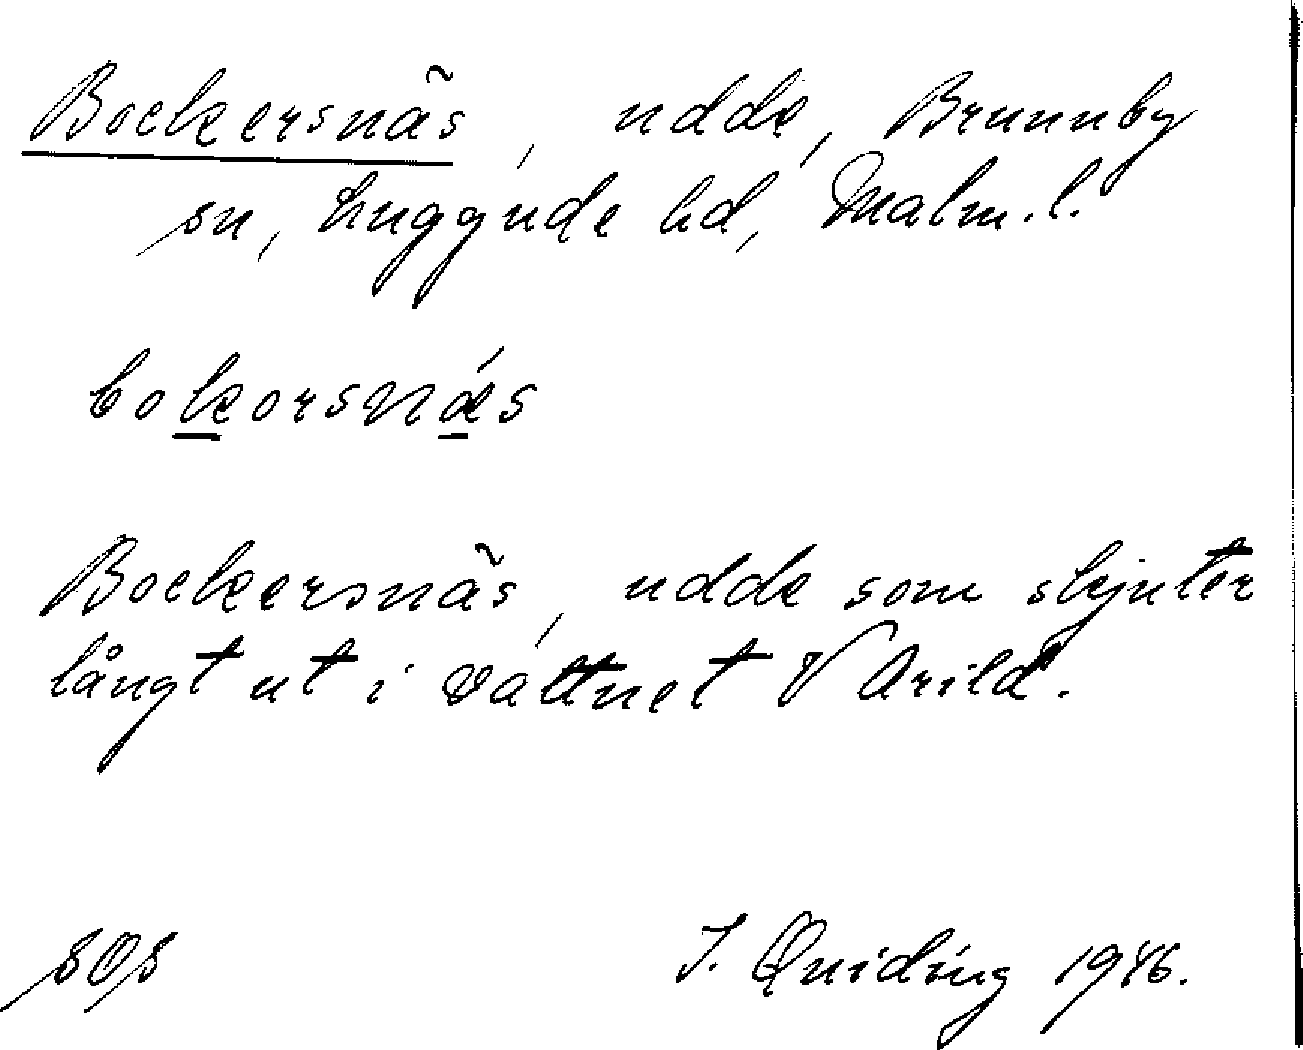 Bockersnäs, udde, Brunnby
sn, Luggude hd, Malm. l.
bokorsnä́s
Bockersnäs, udde som skjuter
långt ut i vattnet V Arild.
SOS I. Quiding 1946.